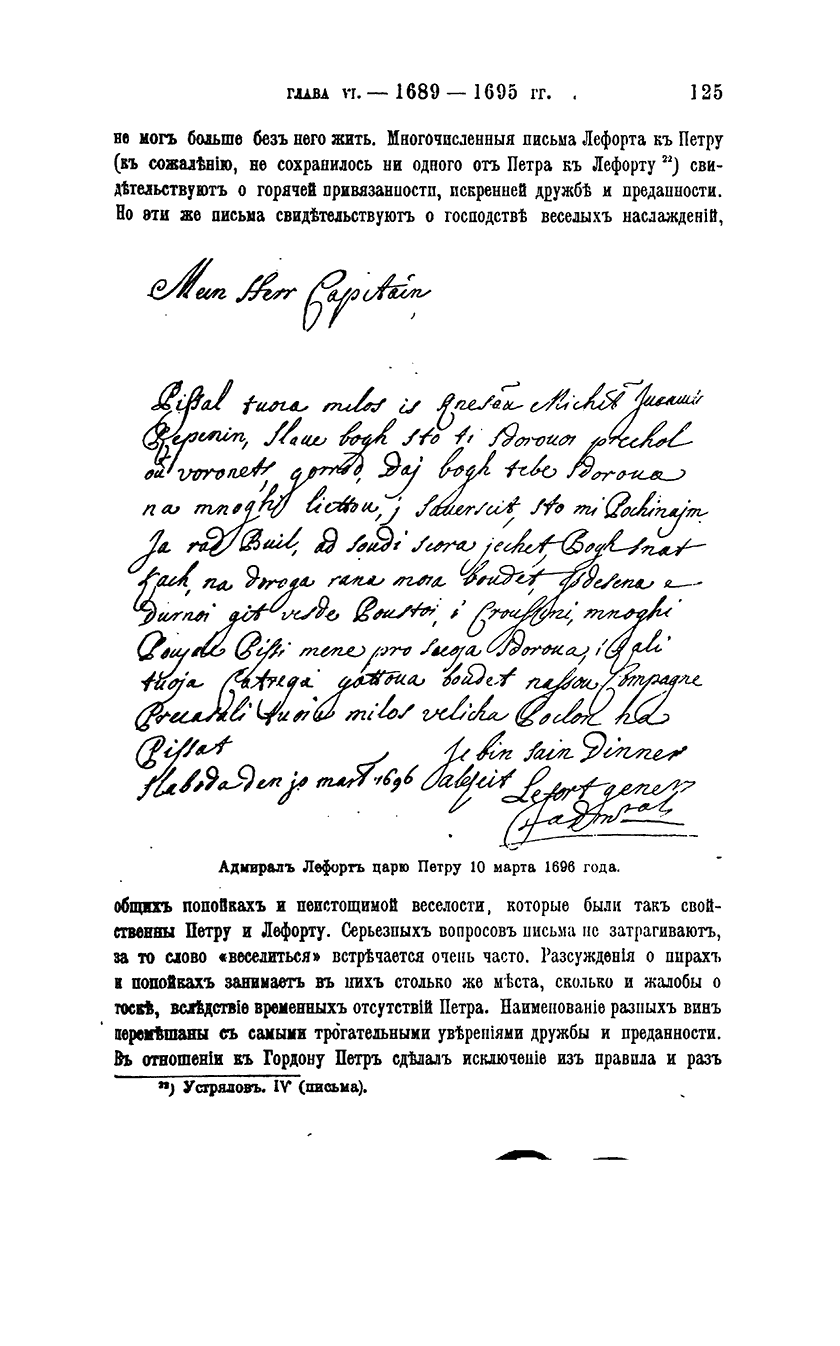 ГЛАВА VI. — 1689 — 1695 ГГ. 125
не могъ больше безъ него жить. Многочисленныя письма Лефорта къ Петру
(къ сожалѣнію, не сохранилось ни одного отъ Петра къ Лефорту ²²) сви-
дѣтельствуютъ о горячей привязанности, искренней дружбѣ и преданности.
Но эти же письма свидѣтельствуютъ о господствѣ веселыхъ наслажденій,
Mein Herr Capitain
Pissal tuoia milos is Michel
Repenin, Slaue bogh sto ti sdorouoi prechol
voronets, gorrod, Daj bogh tebe sdoroua
na mnoghi liettou, j sauersit, sto mi Pochinajm
Ja rad Buil, ad soudi scora jechet, Bogh snat
kach, na doroga rana moia boudet, sdesena e
Durnoi git vesde Poustoi, i mnoghi
Pissi mene pro suoja sdoroua, i
tuoja Catrega gottoua boudet nassou Compagne
tuoia milos velicha Poclon na
Pissat Je bin sain Dinner
slaboda den 10 mart 1696 abseit Lefort gener
admiral
Адмиралъ Лефортъ царю Петру 10 марта 1696 года.
общихъ попойкахъ и неистощимой веселости, которые были такъ свой-
ственны Петру и Лефорту. Серьезныхъ вопросовъ письма не затрагиваютъ,
за то слово «веселиться» встрѣчается очень часто. Разсужденія о пирахъ
и попойкахъ занимаетъ въ нихъ столько же мѣста, сколько и жалобы о
тоскѣ, вслѣдствіе временныхъ отсутствій Петра. Наименованіе разныхъ винъ
перемѣшаны съ самыми трогательными увѣреніями дружбы и преданности.
Въ отношеніи къ Гордону Петръ сдѣлалъ исключеніе изъ правила и разъ
²²) Устряловъ. IV (письма).